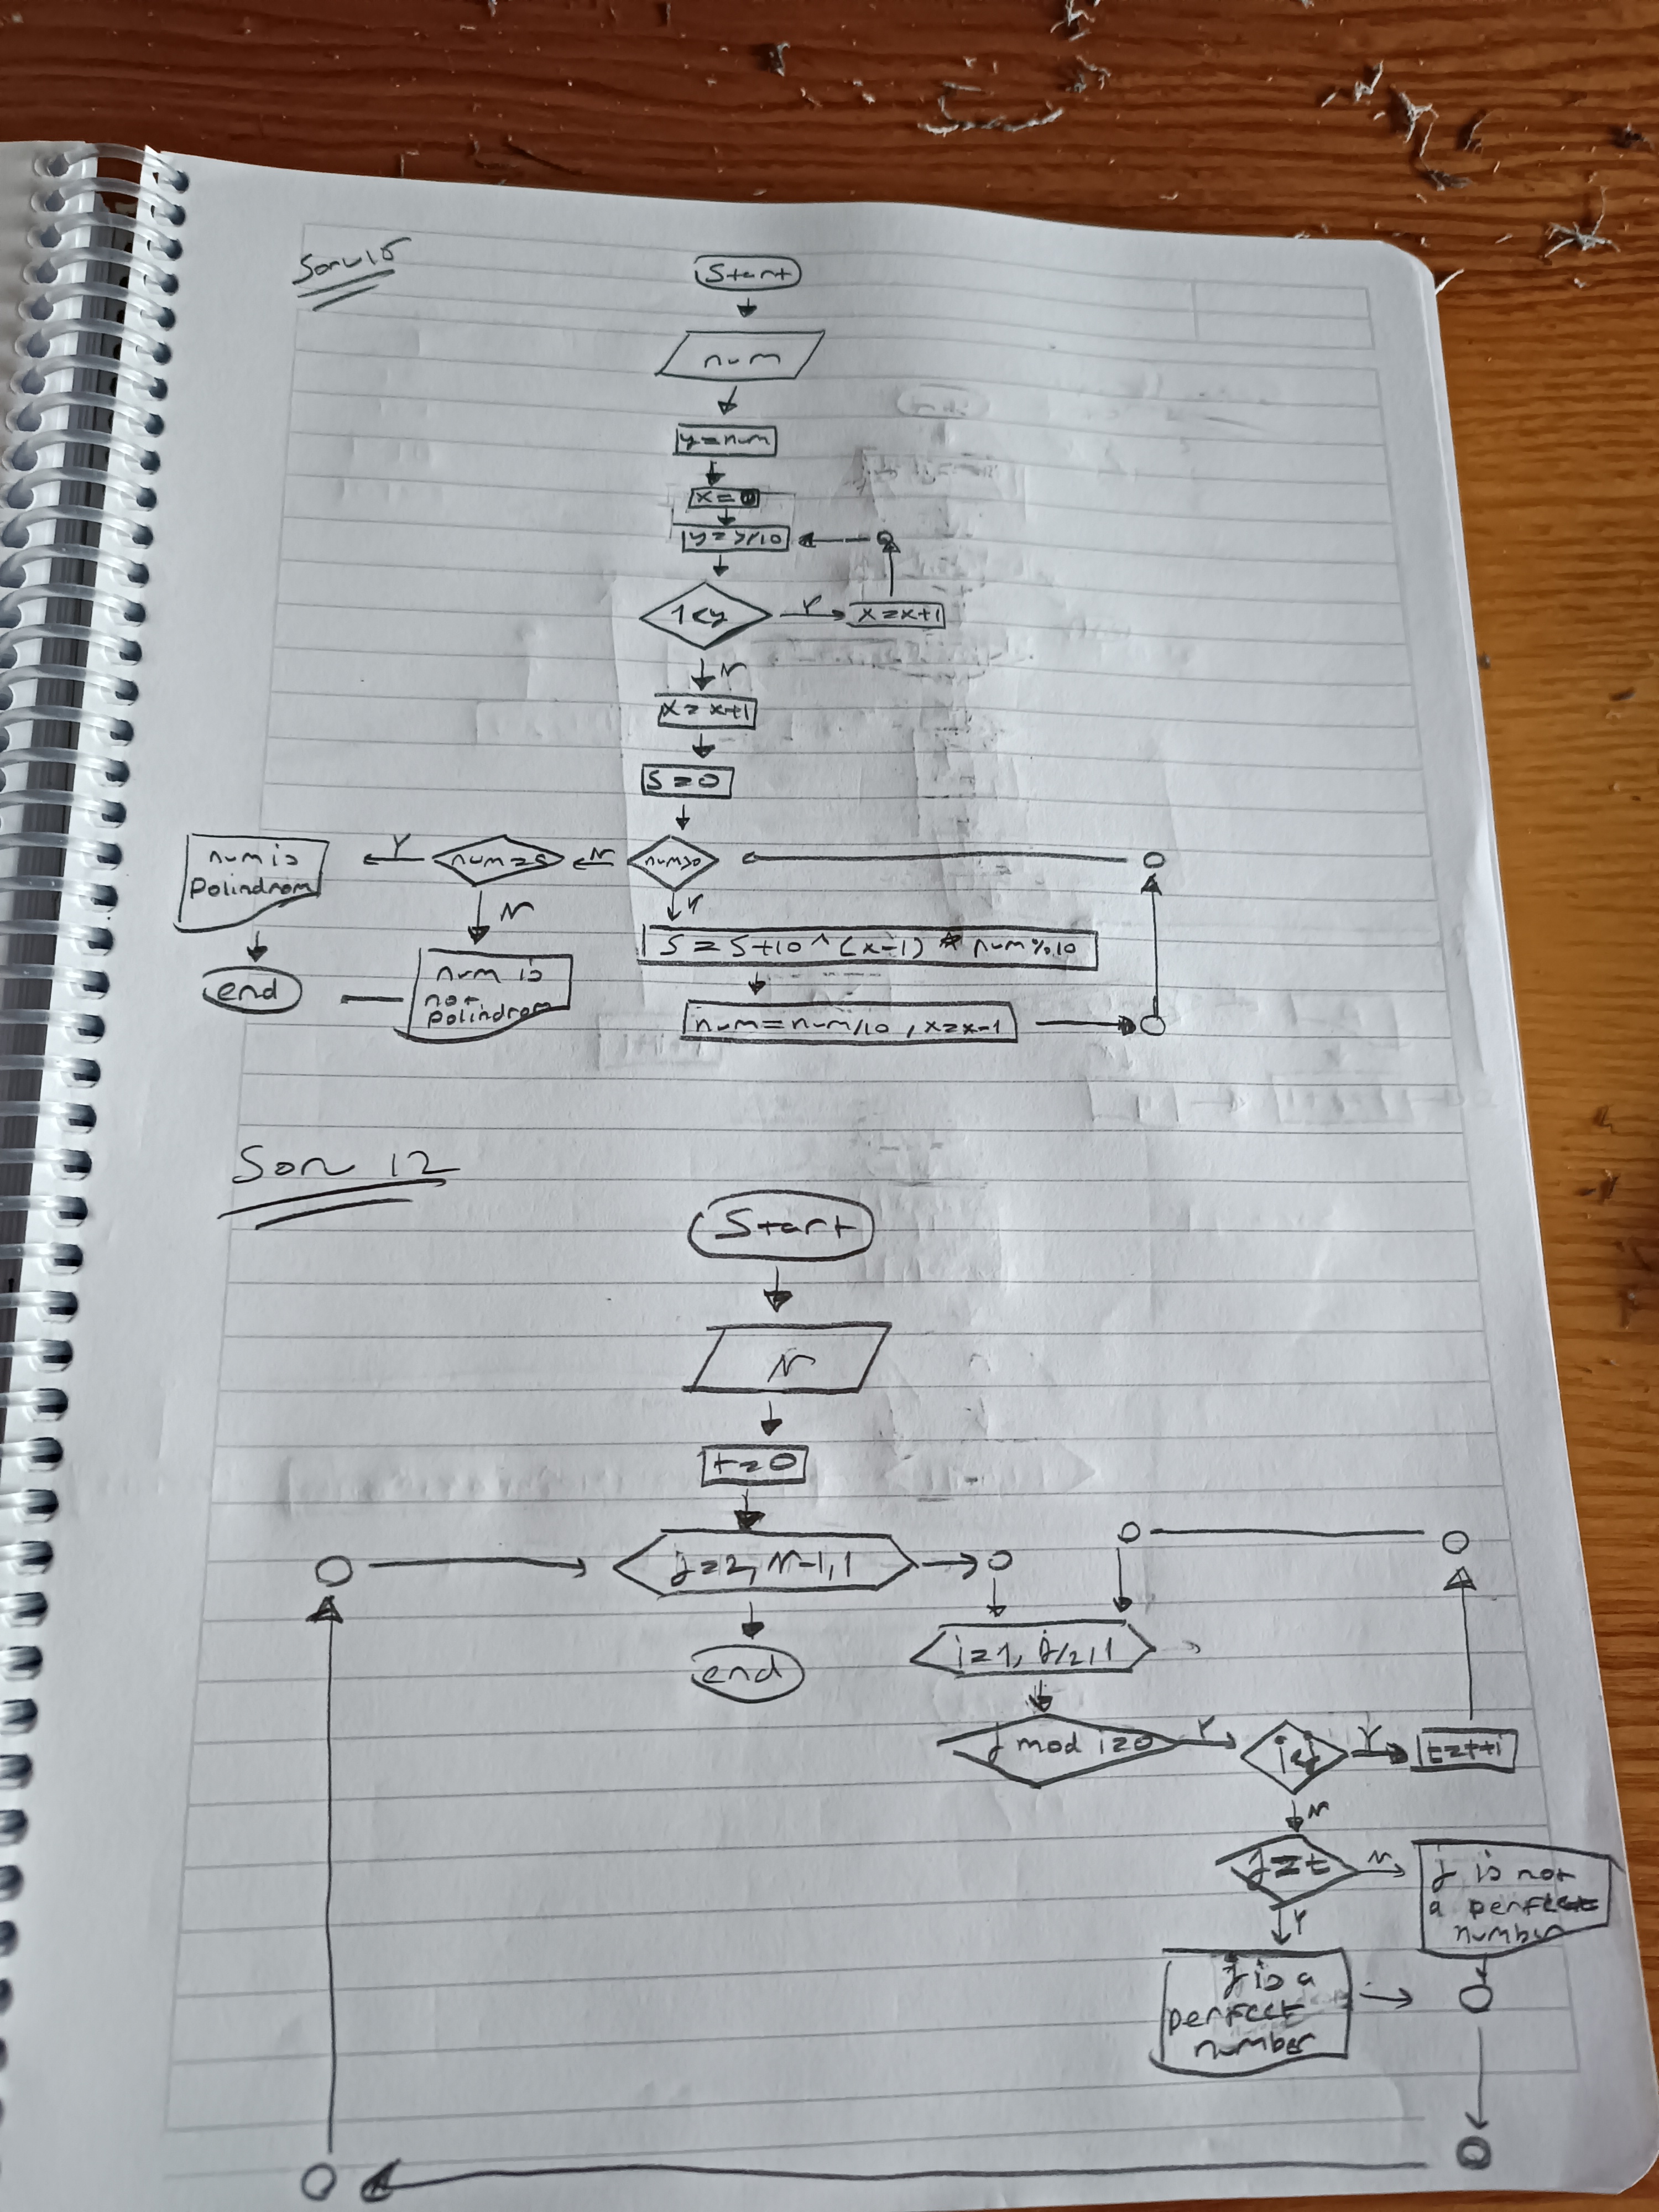 Soru 15
Start
num
y=num
x=0
y=y/10
1<y
Y
x=x+1
N
x=x+1
S=0
num>0
N
num=s
Y
num is
polindrom
end
N
num is
not
polindrom
Y
S=S+10^(x-1)*num%10
num=num/10,x=x-1
Soru 12
Start
N
t=0
j=2,N-1,1
end
i=1,j/2,1
j mod i=0
Y
i<j
Y
t=t+i
N
j=t
N
j is not
a perfect
number
Y
j is a
perfect
number